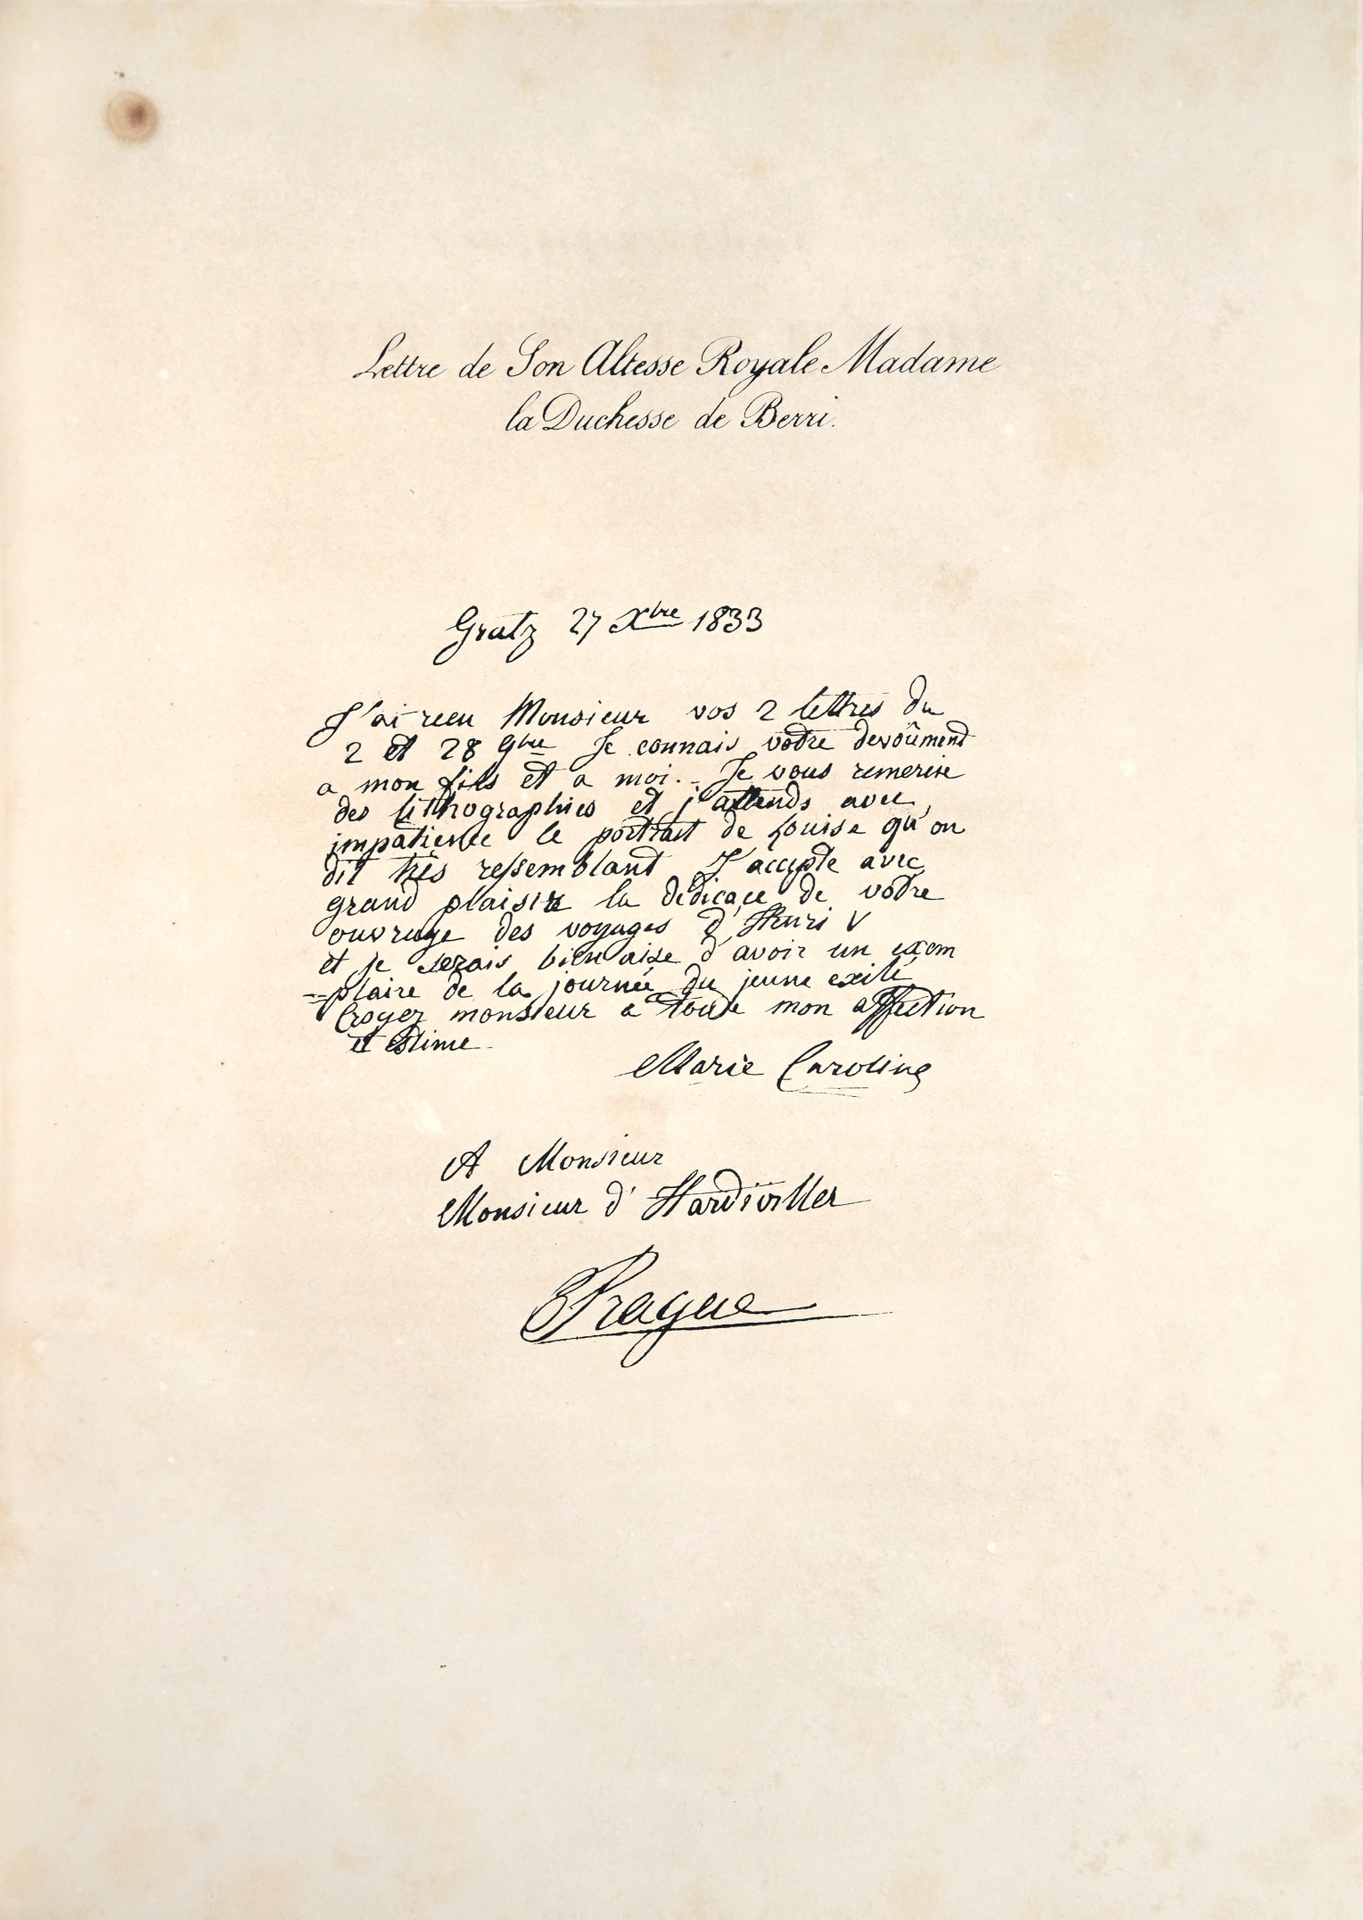 Lettre de Son Altesse Royale Madame
la Duchesse de Berri.
Gratz 27 Xbre 1833
J'ai recu Monsieur vos 2 lettres du
2 et 28 9bre Je connais votre devoûment
a mon fils et a moi. - Je vous remercie
des lithographies et j'attends avec
impatience le portrait de Louise qu'on
dit très ressemblant J'accepte avec
grand plaisir la dédicace de votre
ouvrage des voyages d'Henri V
et je serais bien aise d'avoir un exem
=plaire de la journée du jeune exilé
Croyez monsieur a toute mon affection
et estime.
Marie Caroline
A Monsieur
Monsieur d'Hardiviller
Prague